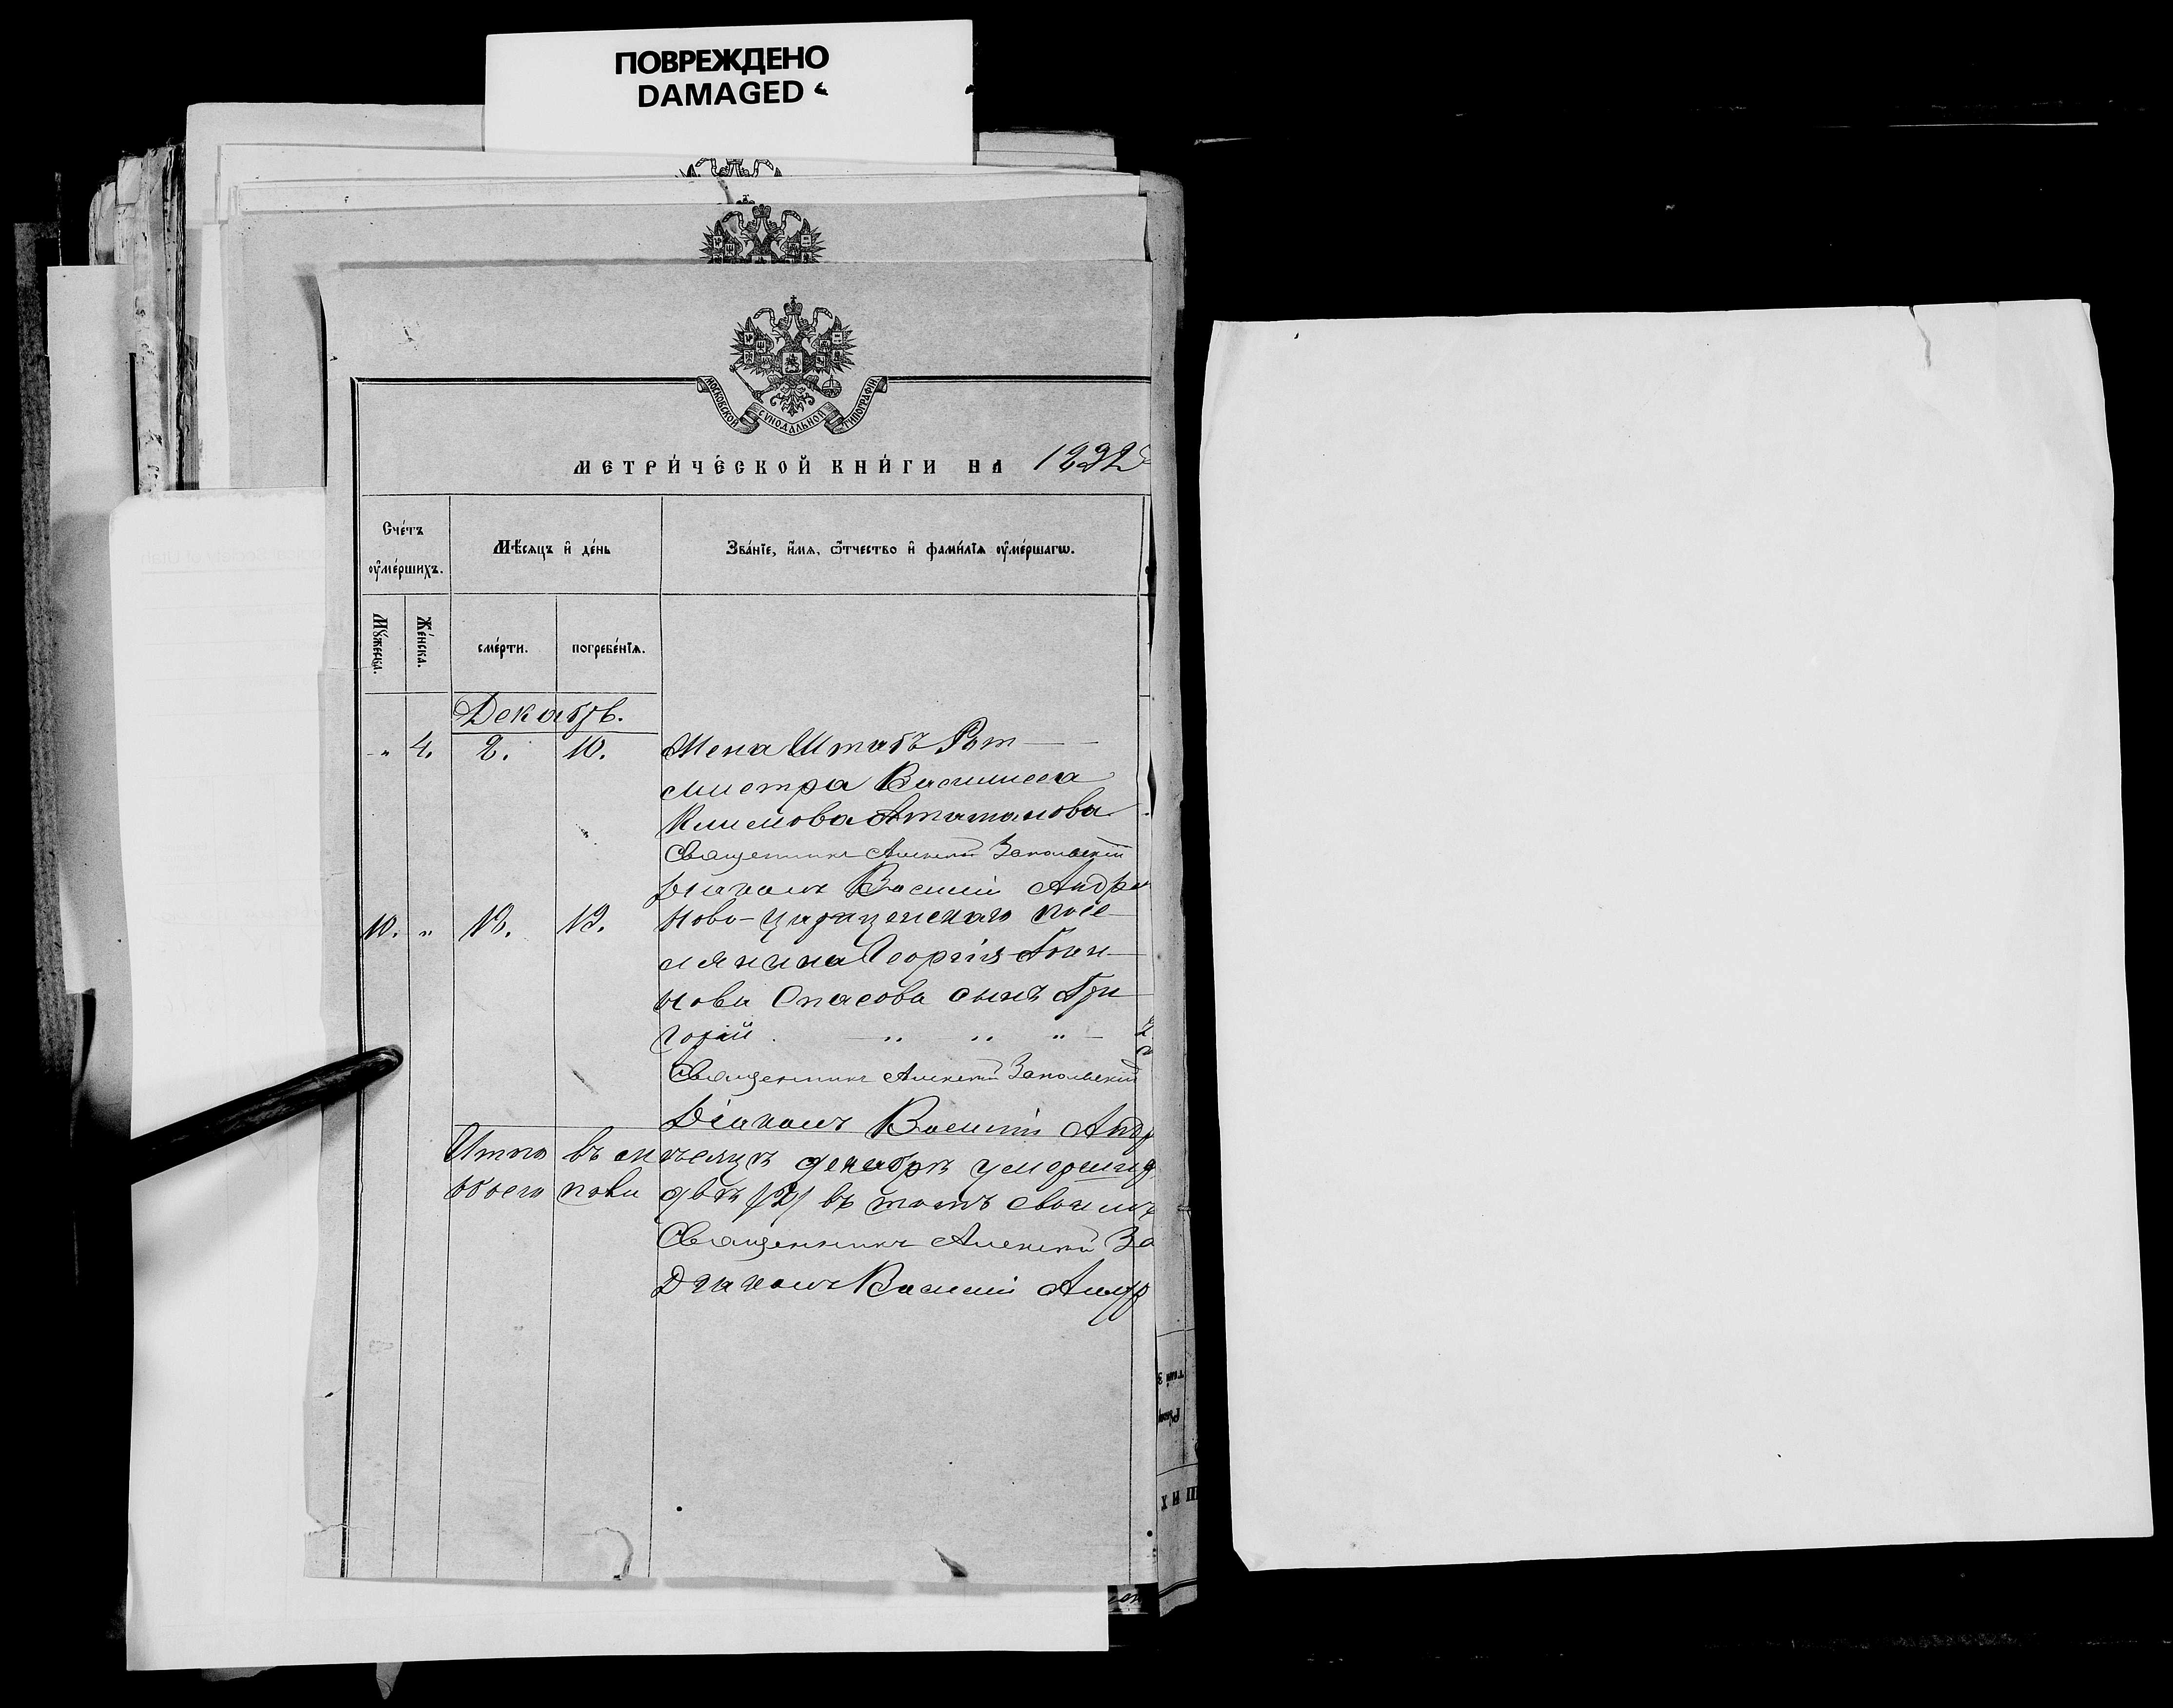 ПОВРЕЖДЕНО
DAMAGED
МОСКОВСКОЙ СѴНОДАЛЬНОЙ ТИПОГРАФІИ
МЕТРИ́ЧЕСКОЙ КНИ́ГИ НА
Сче́тъ оу҆ме́ршихъ.
Мѣ́сяцъ и҆ де́нь
Зва́нїе, и҆́мѧ, ѻ҆́тчество и҆ фами́лїѧ оу҆ме́ршагѡ.
Мꙋ́жеска.
Же́нска.
сме́рти.
погребе́нїѧ.
Декабрь.
" 4. 2. 10. Жена Штабъ Рот-
мистра Василиса
Климова
Священникъ Алексій Запольскій
Діаконъ Василій Андре
10. " 12. 13. Ново-Цариценскаго посе-
лянина Георгія
нова Спасова сынъ Гри
горій " " "
Священникъ Алексій Запольскій
Діаконъ Василій Анд
Итого въ мѣсяцѣ декабрѣ умерших
обоего пола двѣ /2/ въ томъ
Священникъ Алексій За
Діаконъ Василій Андр